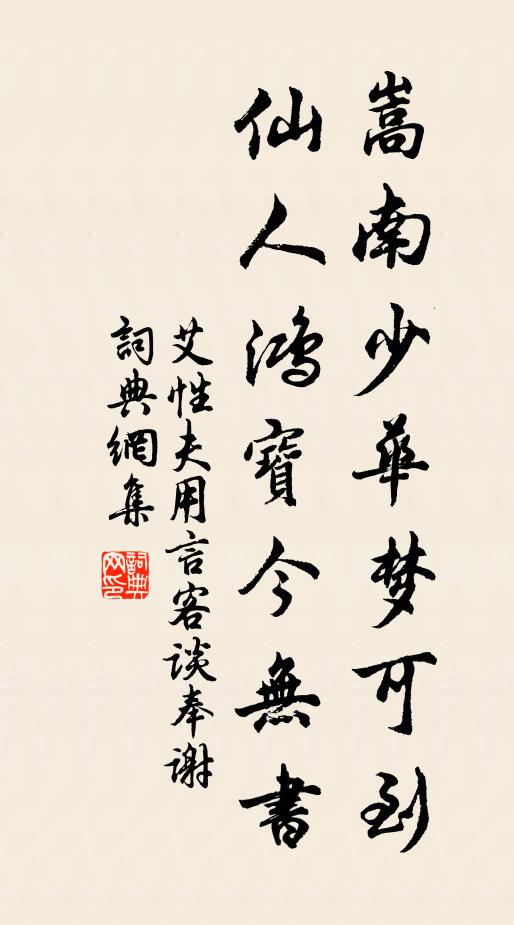 嵩南少華梦可到
仙人鸿寶今無書
艾性夫用言客谈奉謝
詞典網集
詞典網印